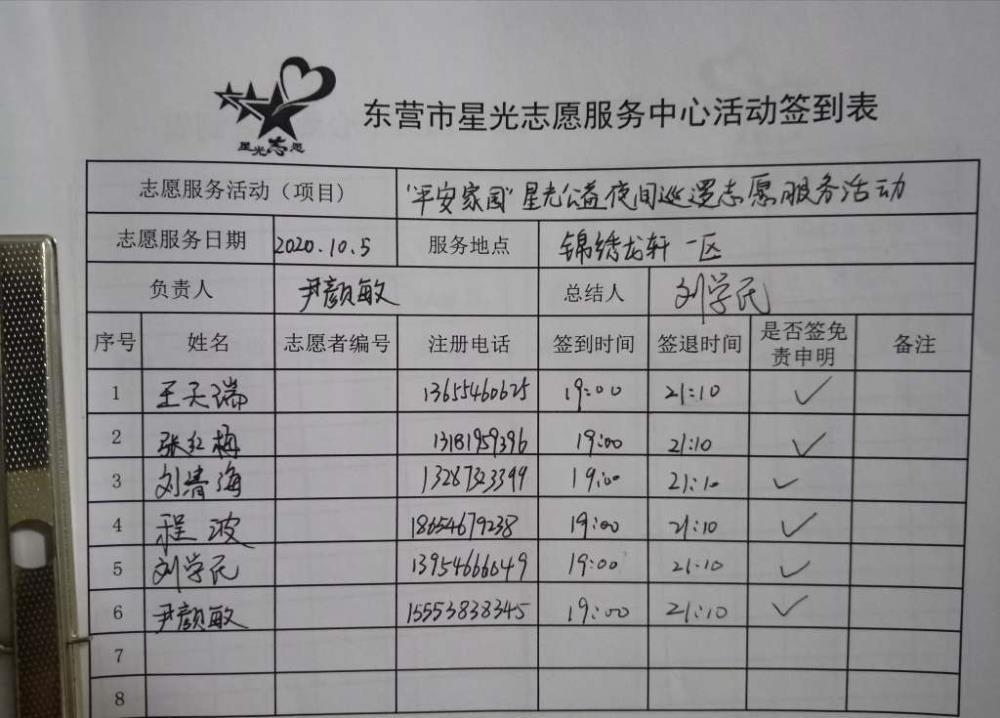 星光志愿
东营市星光志愿服务中心活动签到表
志愿服务活动（项目） "平安家园"星光公益夜间巡逻志愿服务活动
志愿服务日期 2020.10.5 服务地点 锦绣龙轩一区
负责人 尹颜敏 总结人 刘学民
序号 姓名 志愿者编号 注册电话 签到时间 签退时间 是否签免责申明 备注
1 王天瑞 13655460625 19:00 21:10 ✓
2 张红梅 13181959396 19:00 21:10 ✓
3 刘清海 13287323399 19:00 21:10 ✓
4 程波 18654679238 19:00 21:10 ✓
5 刘学民 13954666049 19:00 21:10 ✓
6 尹颜敏 15553838345 19:00 21:10 ✓
7
8